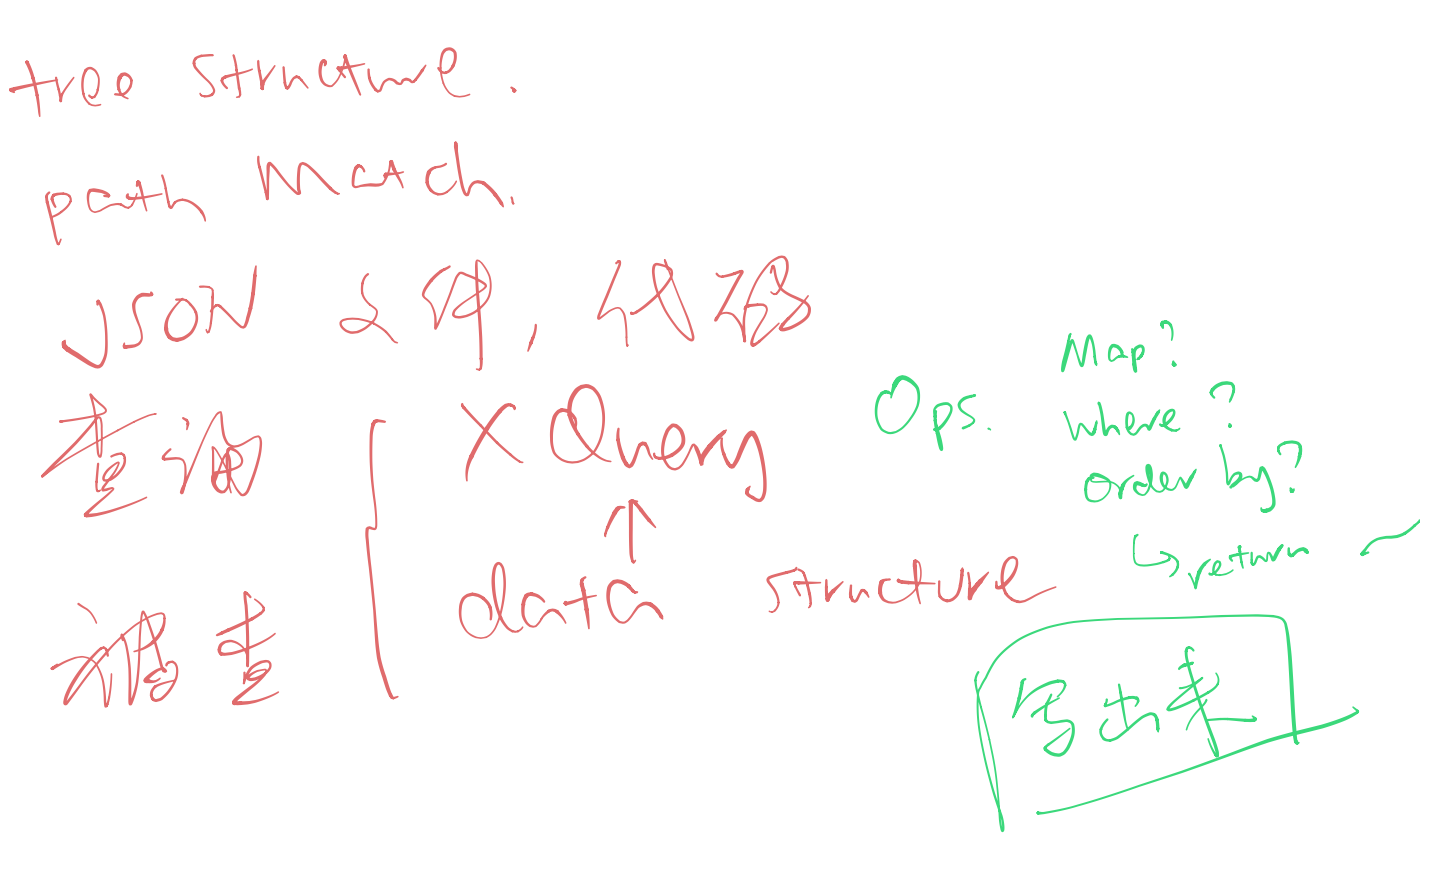 tree structure.
path match.
JSON 文件, 代码
查询
XQuery
被查
data structure
Ops.
Map?
where?
order by?
return
写出来